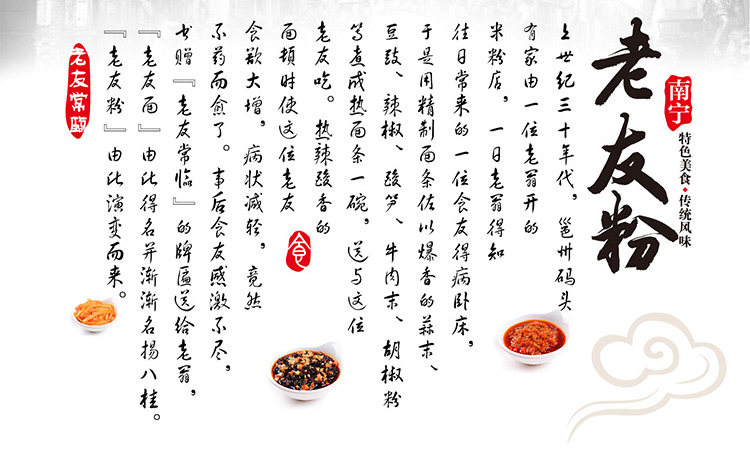 老友粉
南宁
特色美食·传统风味
上世纪三十年代，邕州码头
有家由一位老翁开的
米粉店，一日老翁得知
往日常来的一位食友得病卧床，
于是用精制面条佐以爆香的蒜末、
豆豉、辣椒、酸笋、牛肉末、胡椒粉
等煮成热面条一碗，送与这位
老友吃。热辣酸香的
面顿时使这位老友
食欲大增，病状减轻，竟然
不药而愈了。事后食友感激不尽，
书赠『老友常临』的牌匾送给老翁，
『老友面』由此得名并渐渐名扬八桂。
『老友粉』由此演变而来。
食
老友常臨